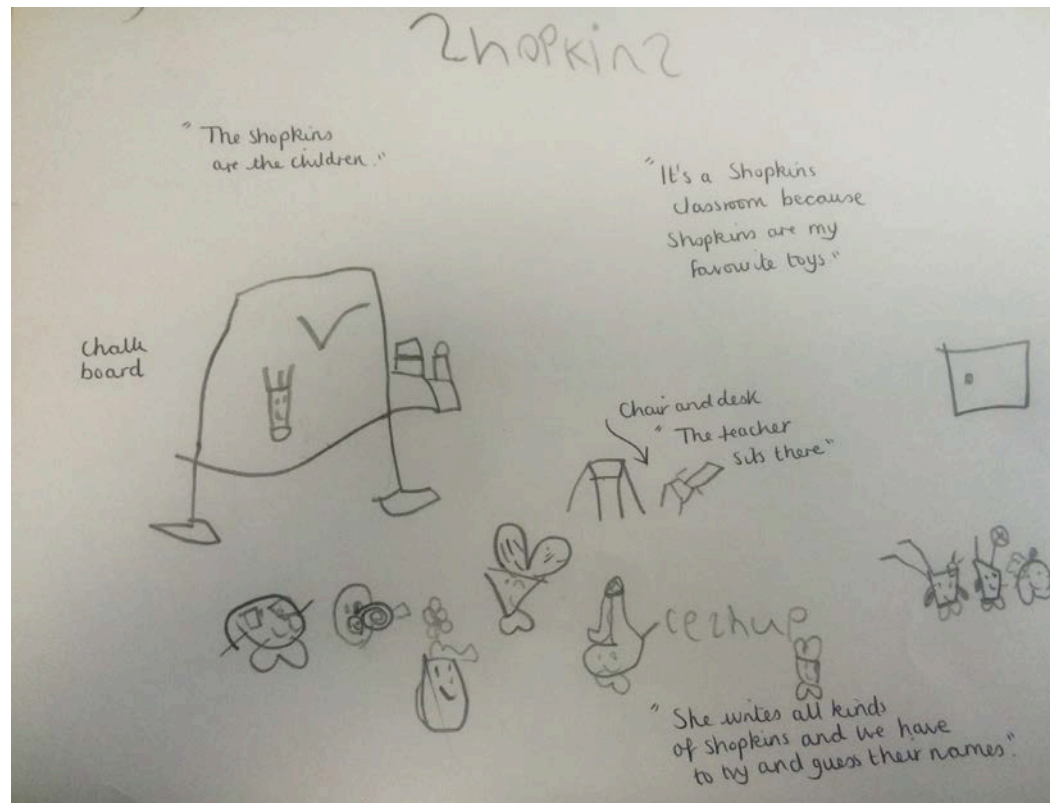 ShopkinS
"The Shopkins
are the children."
"It's a Shopkins
classroom because
Shopkins are my
favourite toys."
Chalk
board
Chair and desk
"The teacher
sits there"
cezhup
"She writes all kinds
of shopkins and we have
to try and guess their names".